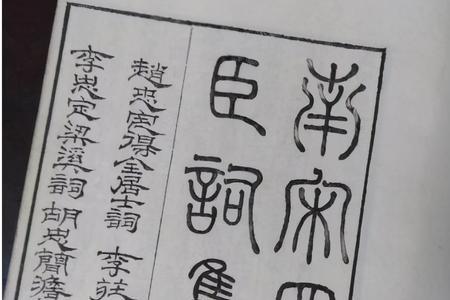 南宋四
臣詞集
趙忠定得全居士詞 李莊
李忠定梁溪詞 胡忠簡澹